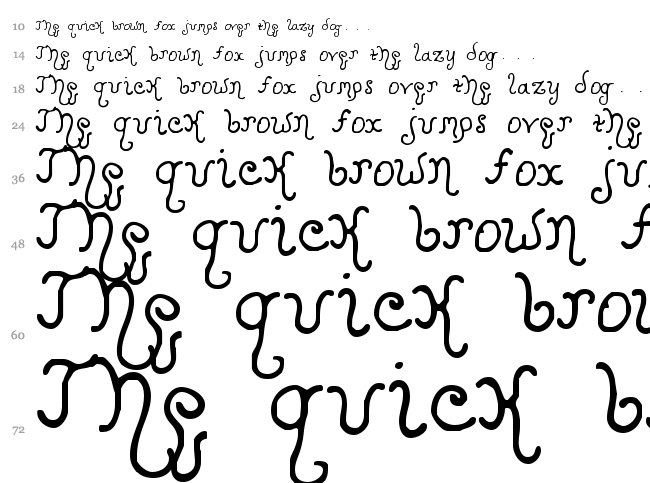 10 The quick brown fox jumps over the lazy dog. . . .
14 The quick brown fox jumps over the lazy dog. . . .
18 The quick brown fox jumps over the lazy dog. . .
24 The quick brown fox jumps over the
36 The quick brown fox ju
48 The quick brown f
60 The quick brow
72 The quick b